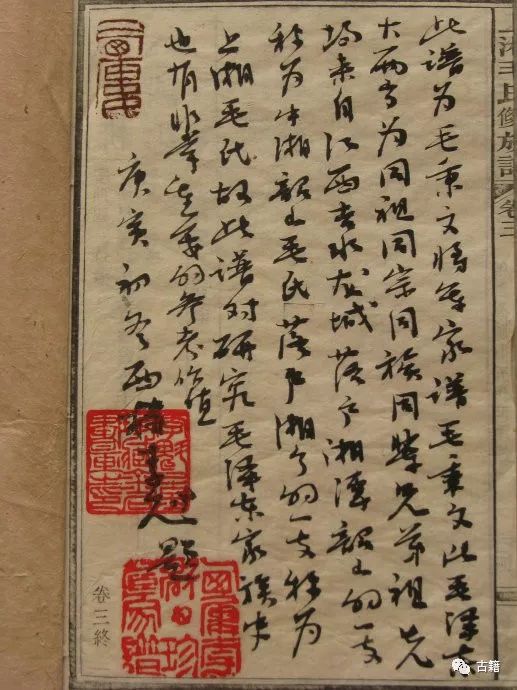 湘毛氏修族譜 卷三
此谱为毛秉文将军家谱毛秉文比毛泽东
大两岁为同祖同宗同族同辈兄弟祖先
均来自江西吉水龙城落户湘潭韶山的一支
称为中湘韶山毛氏落户湘乡的一支称为
上湘毛氏故此谱对研究毛泽东家族史
也有非常重要的参考价值
庚寅初冬西 题
卷三終
古籍